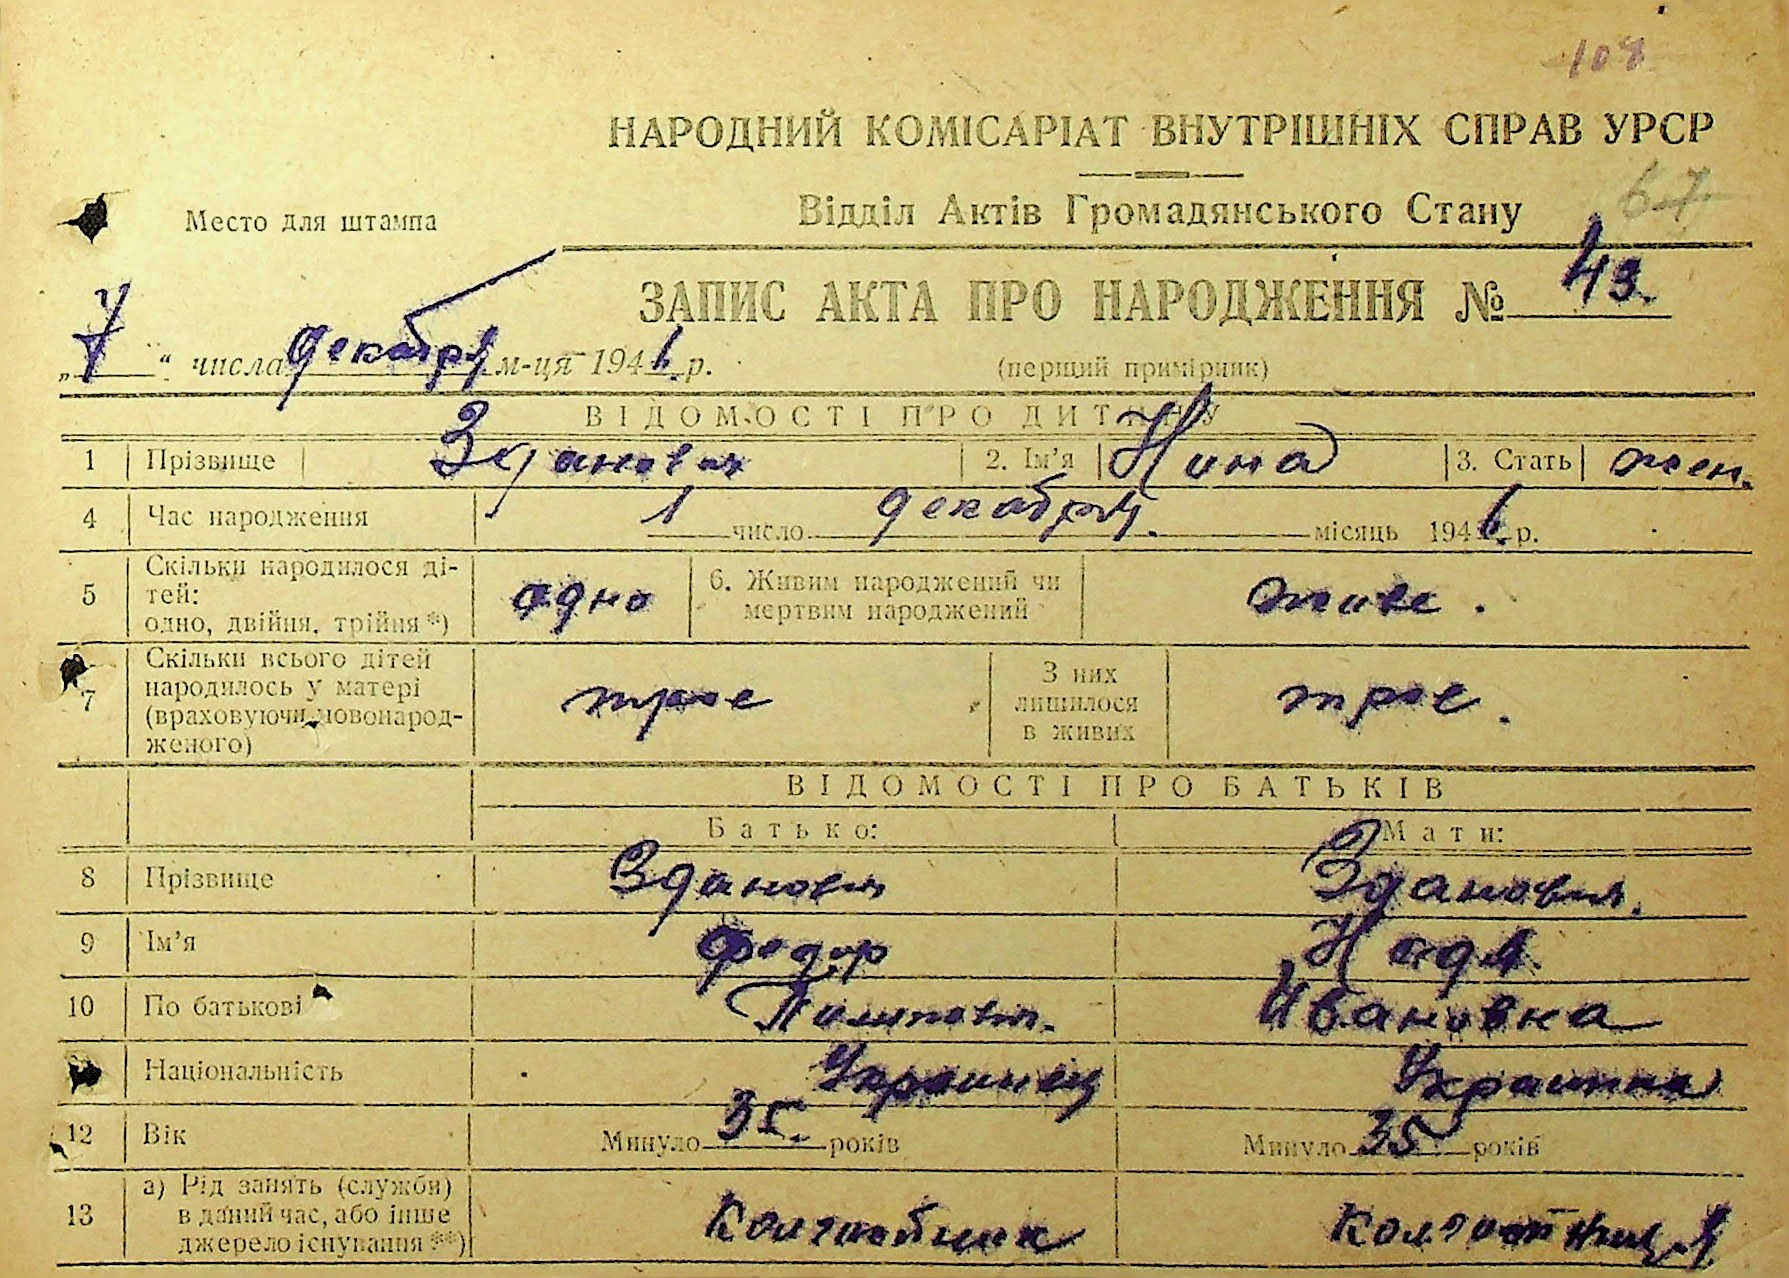 108
НАРОДНИЙ КОМІСАРІАТ ВНУТРІШНІХ СПРАВ УРСР
67
Место для штампа
Відділ Актів Громадянського Стану
ЗАПИС АКТА ПРО НАРОДЖЕННЯ № 43.
„7“ числа декабря м-ця 1946 р.
(перший примірник)
ВІДОМОСТІ ПРО ДИТИНУ
1 Прізвище Зданович 2. Ім'я Нина 3. Стать жен.
4 Час народження 1 число декабря. місяць 1946 р.
5 Скільки народилося ді-
тей:
одно, двійня, трійня *) одно 6. Живим народжений чи
мертвим народжений живе.
7 Скільки всього дітей
народилось у матері
(враховуючи новонарод-
женого) трое З них
лишилося
в живих трое.
ВІДОМОСТІ ПРО БАТЬКІВ
Батько: Мати:
8 Прізвище Зданович Зданович.
9 Ім'я Федор Надя.
10 По батькові Пилипович. Ивановна
Національність Украинец Украинка
12 Вік Минуло 35. років Минуло 35 років
13 а) Рід занять (служби)
в даний час, або інше
джерело існування **) Колгоспник